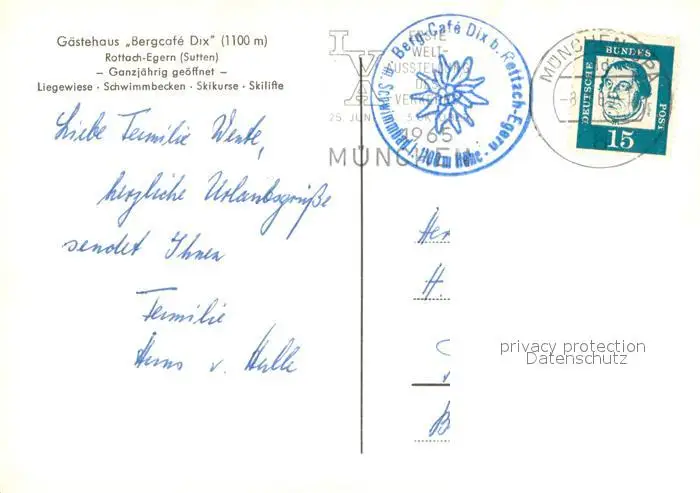 Gästehaus „Bergcafé Dix" (1100 m)
Rottach-Egern (Sutten)
– Ganzjährig geöffnet –
Liegewiese · Schwimmbecken · Skikurse · Skilifte
Liebe Familie
herzliche Urlaubsgrüße
sendet Ihnen
Familie
Hans v.
Berg-Café Dix b. Rottach-Egern
m. Schwimmbad, 1100 m Höhe
IVA
ERSTE
WELT-
AUSSTELLUNG
DES
VERKEHRS
25. JUNI
1965
MÜNCHEN
MÜNCHEN
DEUTSCHE
BUNDES
POST
15
H.
privacy protection
Datenschutz